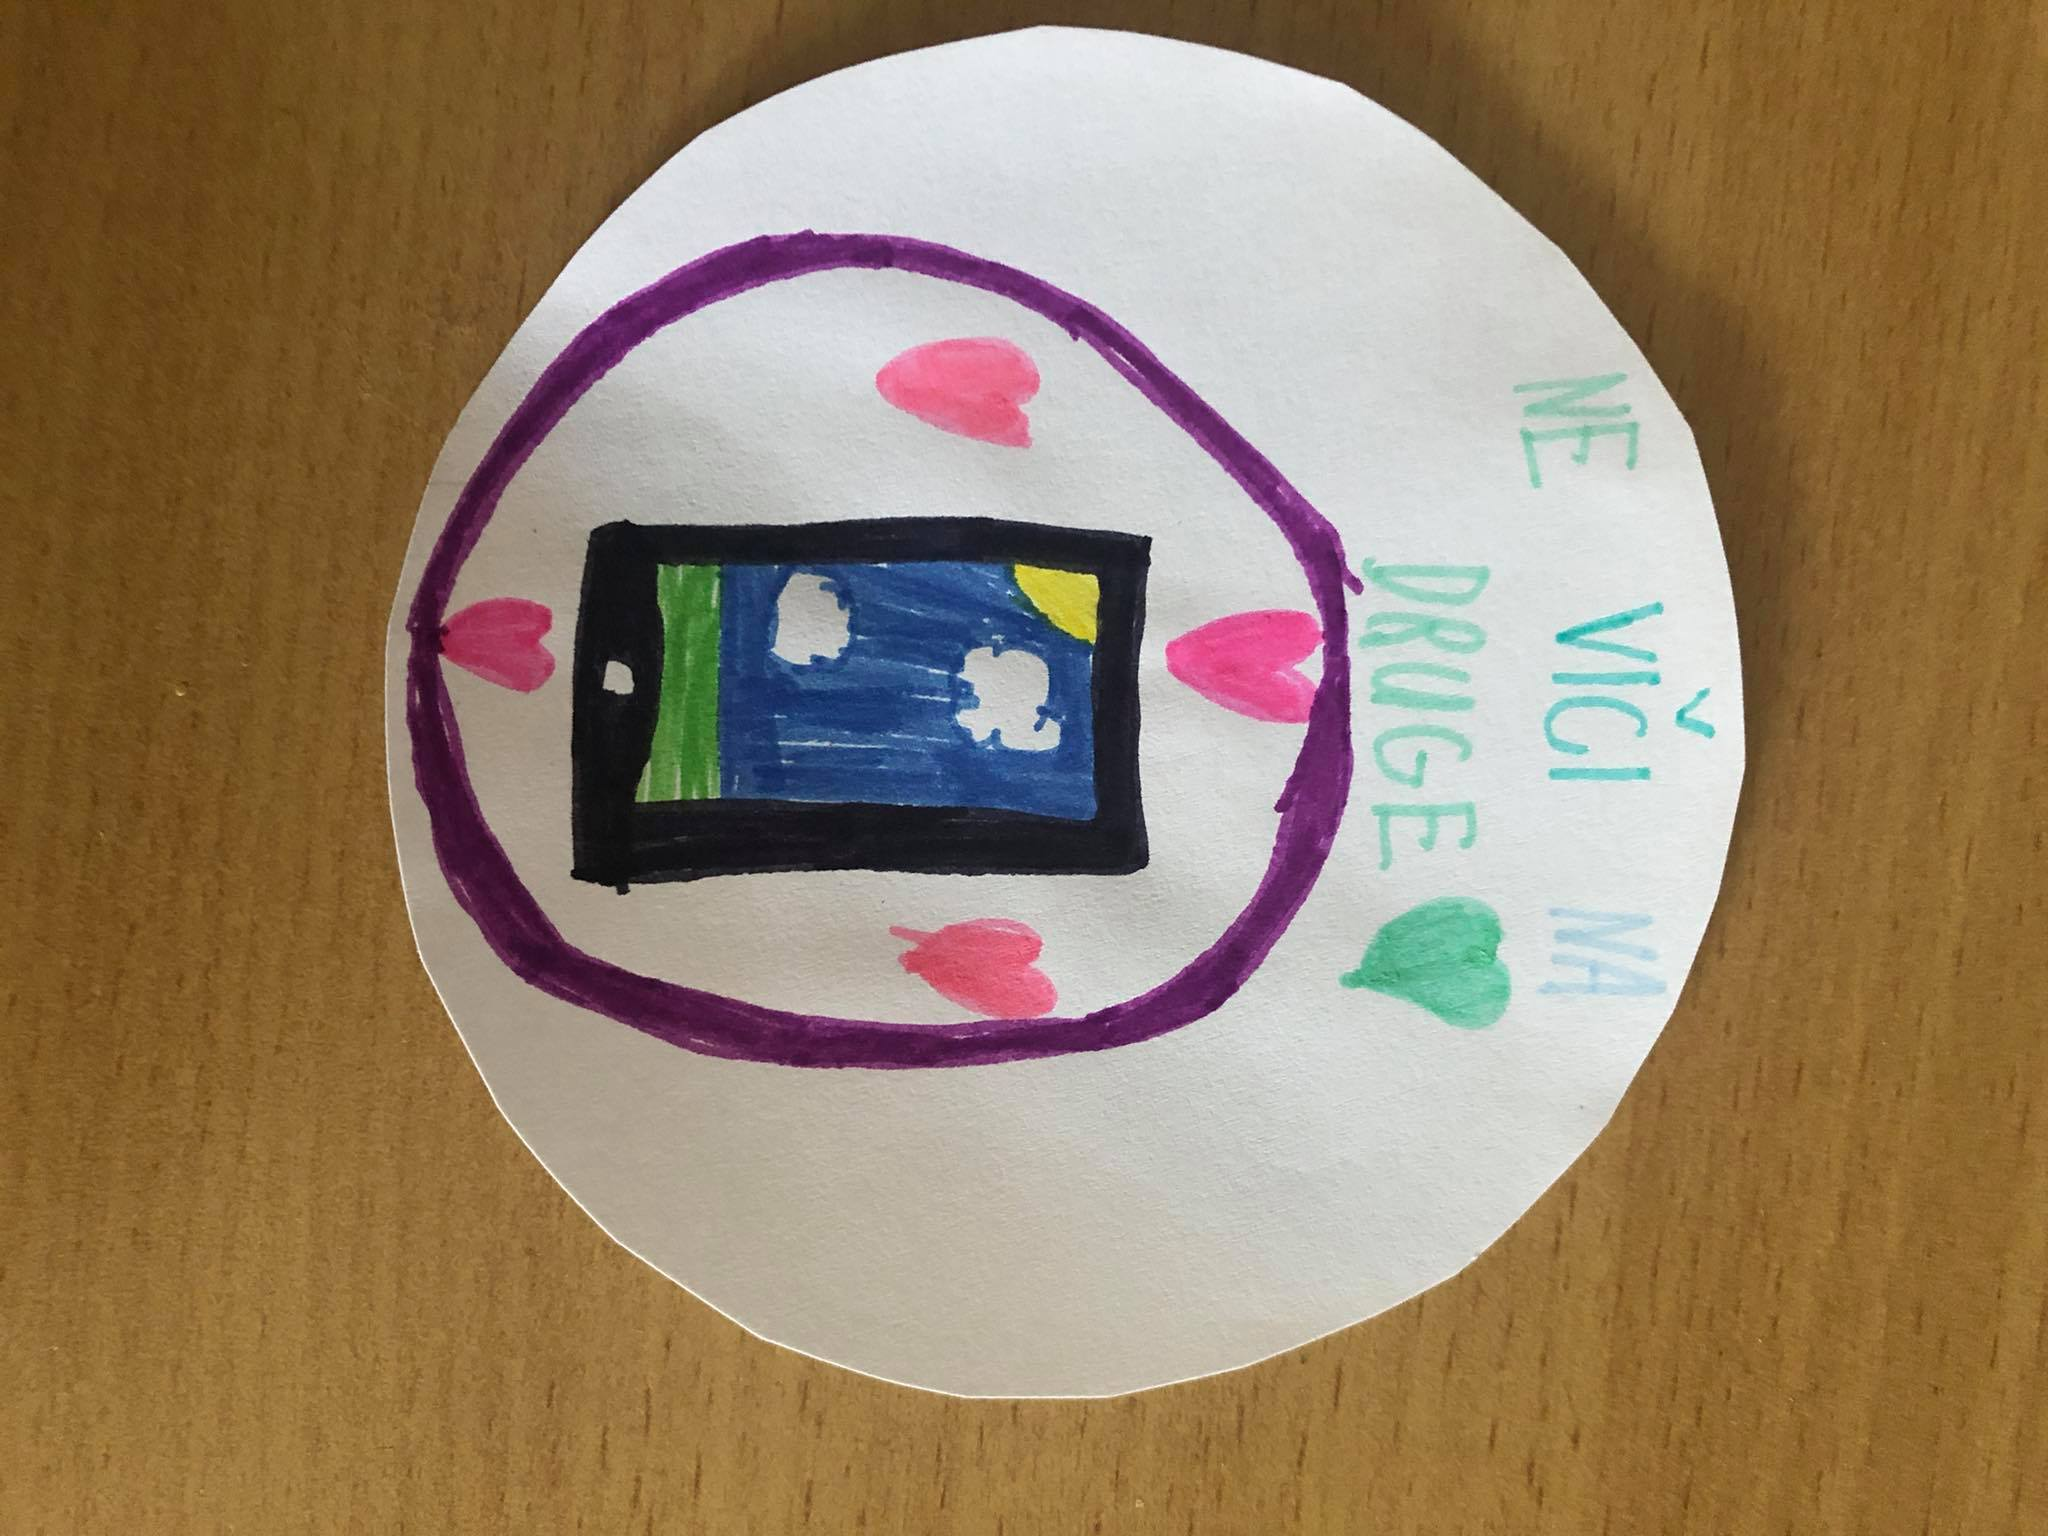 NE VIČI NA
DRUGE